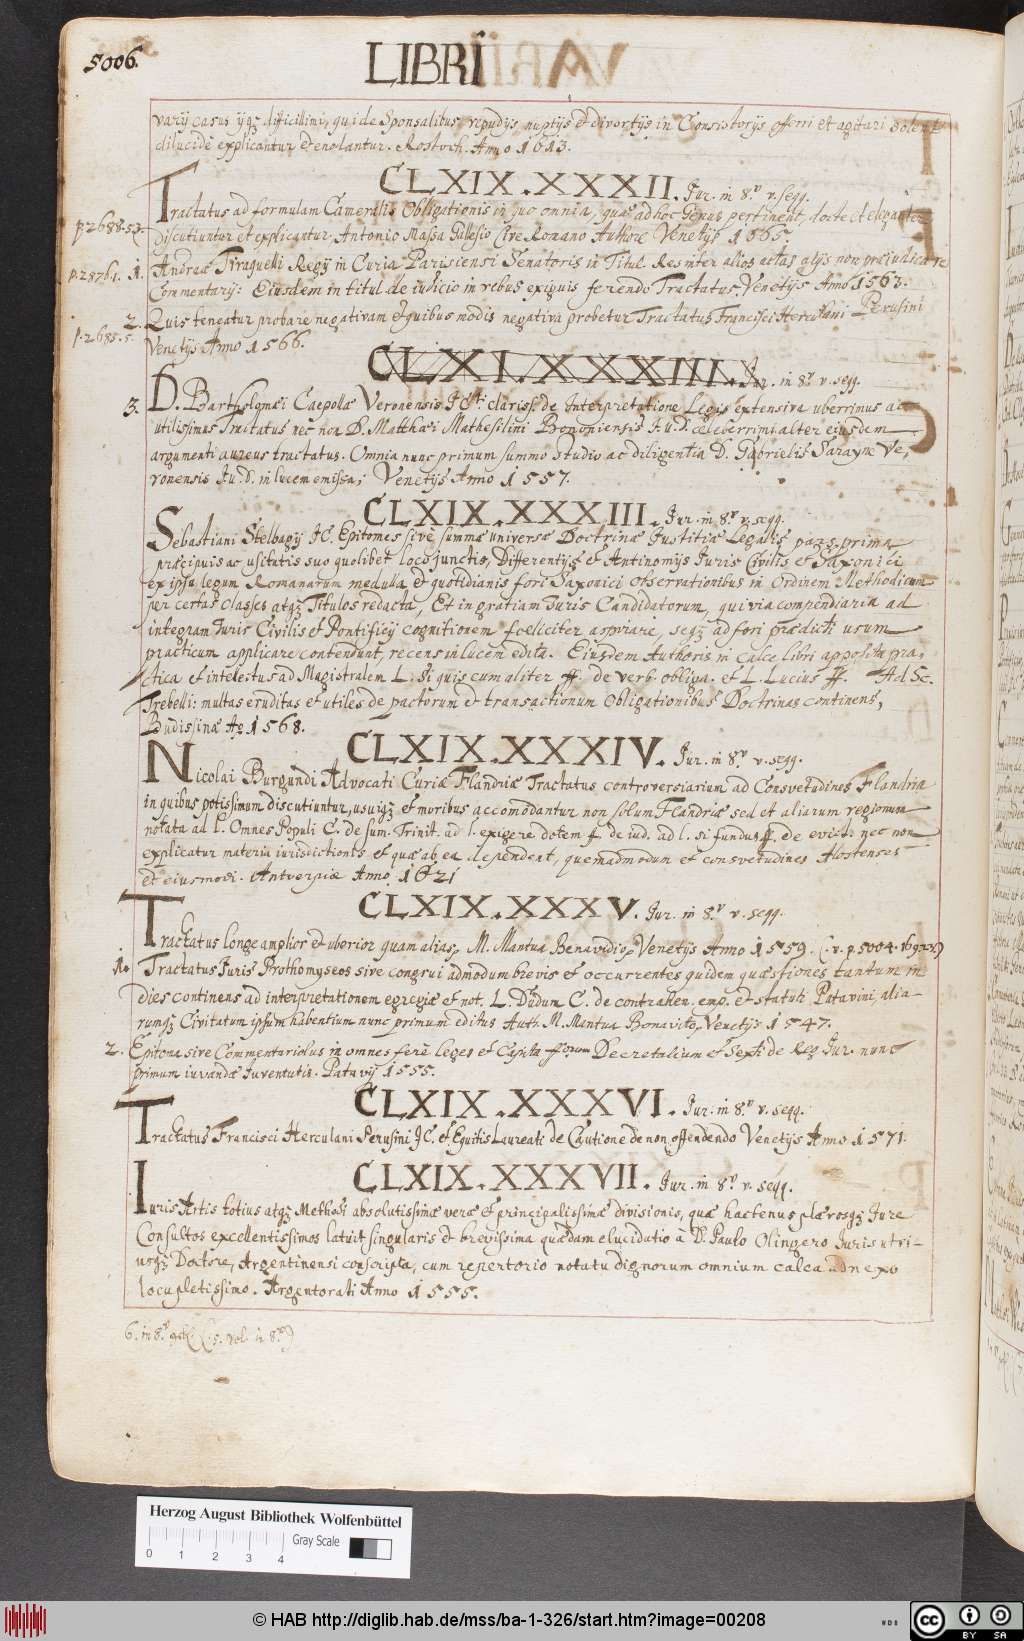 5006.
LIBRI
varij casus ijqz difficillimi, qui de Sponsalibus, repudijs, nuptijs et divortijs in Consistorijs offerri et agitari solent
dilucidè explicantur et enodantur. Rostoch. Anno 1613.
CLXIX.XXXII. Jur. in 8.º v. seqq.
Tractatus ad formulam Cameralis Obligationis in quo omnia, quæ ad hoc Genus pertinent, docte et eleganter
p. 2688.53.
discutiuntur et explicantur, Antonio Massa Gallesio Cive Romano Authore Venetijs 1565.
p. 2876. 1. Andreæ Tiraquelli Regij in Curia Parisiensi Senatoris in Titul. Res inter alios actas alijs non præiudicare
Commentarij: Eiusdem in titul. de iudicio in rebus exiguis ferendo Tractatus. Venetijs Anno 1563.
p. 2685.5. 2. Quis teneatur probare negativam et quibus modis negativa probetur Tractatus Francisci Herculani Perusini
Venetijs Anno 1566.
CLXI.XXXIII. Jur. in 8.º v. seqq.
3. D. Bartholomæi Caepollæ Veronensis JCti clariss. de Interpretatione Legis extensiva uberrimus ac
utilissimus Tractatus nec non D. Matthæi Mathesilini Bononiensis J.u.D. celeberrimi alter eiusdem
argumenti aureus tractatus. Omnia nunc primum summo studio ac diligentia D. Gabrielis Saraynæ Ve-
ronensis J.u.D. in lucem emissa; Venetijs Anno 1557.
CLXIX.XXXIII. Jur. in 8.º v. seqq.
Sebastiani Stelbagij JC. Epitomes sive summæ universæ Doctrinæ Justitiæ Legalis pars prima
præcipuis ac usitatis suo quolibet loco junctis, Differentijs et Antinomijs Juris Civilis et Saxonici
ex ipsa legum Romanarum medula et quotidianis fori Saxonici observationibus in Ordinem Methodicum
per certas classes atqz Titulos redacta, Et in gratiam Juris Candidatorum, qui via compendiaria ad
integram Juris Civilis et Pontificij cognitionem foeliciter aspirare, seqz ad fori prædicti usum
practicum applicare contendunt, recens in lucem edita. Eiusdem Authoris in calce libri apposita pra-
ctica et intelectus ad Magistralem L. Si quis cum aliter ff. de verb. obliga. et L. Lucius ff. Ad Sc.
Trebelli: multas eruditas et utiles de pactorum et transactionum Obligationibus Doctrinas continens,
Budissinæ Ao 1568.
CLXIX.XXXIV. Jur. in 8.º v. seqq.
Nicolai Burgundi Advocati Curiæ Flandriæ Tractatus controversiarium ad Consvetudines Flandriæ
in quibus potissimum discutiuntur, usuiqz et moribus accomodantur non solum Flandriæ sed et aliarum regionum
notata ad l. Omnes Populi C. de sum. Trinit. ad l. exigere dotem ff. de iud. ad l. si fundus ff. de evict. nec non
explicatur materia iurisdictionis et quæ ab ea dependent, quemadmodum et consvetudines Alostenses
et eiusmodi. Antverpiæ Anno 1621
CLXIX.XXXV. Jur. in 8.º v. seqq.
Tractatus longe amplior et uberior quam alias, M. Mantua Benavidio, Venetijs Anno 1559. (: v. p. 5004.
1. Tractatus Juris Prothomyseos sive congrui admodum brevis et occurrentes quidem quæstiones tantum in
Dies continens ad interpretationem egregiæ et not. L. Dudum C. de contrahen. emp. et statuti Patavini, alia-
rumqz Civitatum ipsum habentium nunc primum editus Auth. M. Mantua Bonavito, Venetijs 1547.
2. Epitoma sive Commentariolus in omnes ferè Leges et Capita Decretalium et Sexti de Reg. Jur. nunc
primum iuvandæ Juventutis. Patavij 1555.
CLXIX.XXXVI. Jur. in 8.º v. seqq.
Tractatus Francisci Herculani Perusini JC. et Equitis Laureati de Cautione de non offendendo Venetijs Anno 1571.
CLXIX.XXXVII. Jur. in 8.º v. seqq.
Iuris Artis totius atqz Methodi absolutissimæ veræ et principalissimæ divisionis, quæ hactenus plærosqz Jure
Consultos excellentissimos latuit singularis et brevissima quædam elucidatio à D. Paulo Olingero Juris utri-
usqz Doctore, Argentinensi conscripta, cum repertorio notatu dignorum omnium calca adnexo
locupletissimo. Argentorati Anno 1555.
Herzog August Bibliothek Wolfenbüttel
Gray Scale
0 1 2 3 4
© HAB http://diglib.hab.de/mss/ba-1-326/start.htm?image=00208
WDB
CC BY SA